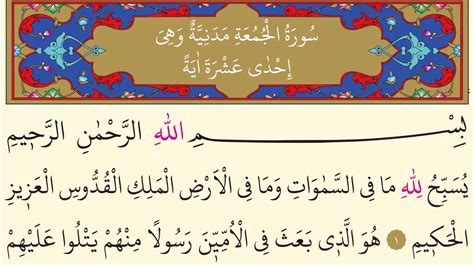 سُورَةُ الْجُمُعَةِ مَدَنِيَّةٌ وَهِيَ
اِحْدٰى عَشْرَةَ اٰيَةً
بِسْمِ اللهِ الرَّحْمٰنِ الرَّحٖيمِ
يُسَبِّحُ لِلهِ مَا فِى السَّمٰوَاتِ وَمَا فِى الْاَرْضِ الْمَلِكِ الْقُدُّوسِ الْعَزٖيزِ
الْحَكٖيمِ ١ هُوَ الَّذٖى بَعَثَ فِى الْاُمِّيّٖنَ رَسُولًا مِنْهُمْ يَتْلُوا عَلَيْهِمْ